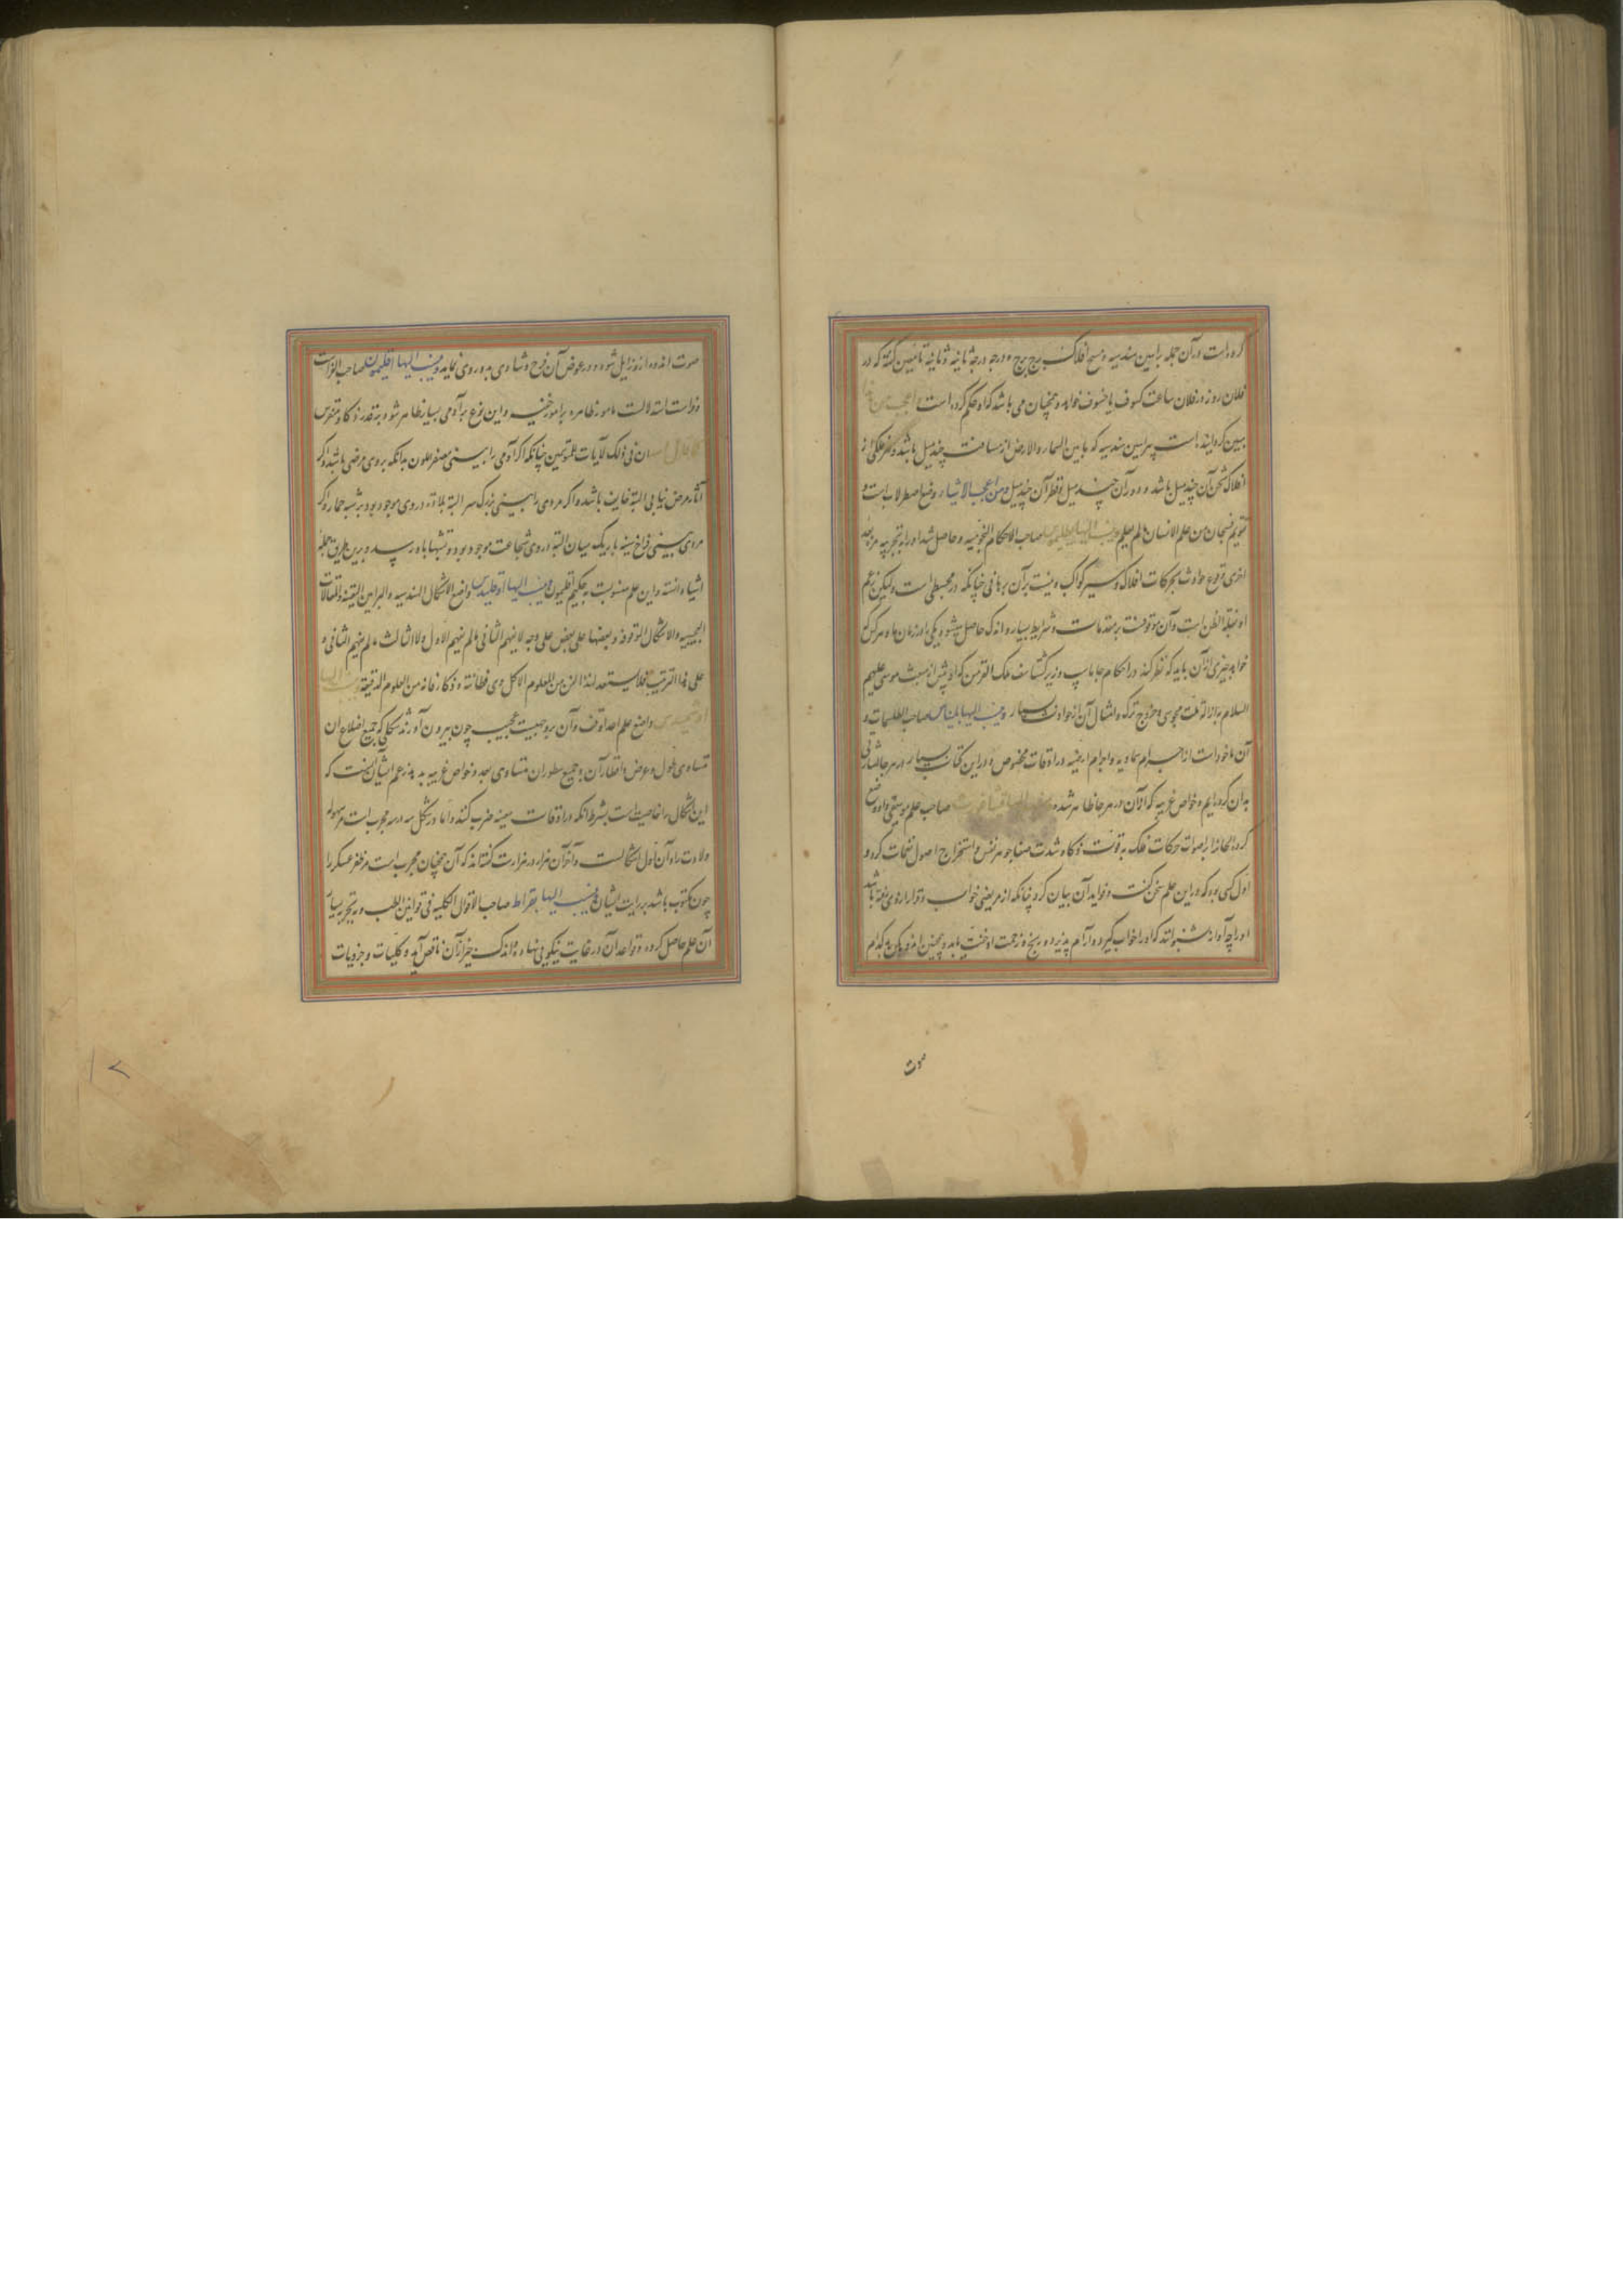 کرده است و در آن جمله براهین هندسیه و مسح افلاک برج برج و درجه درجه ثانیه ثانیه تا تعیین گشته که در
فلان روز در فلان ساعت کسوف یا خسوف خواهد و همچنان می باشد که او حکم کرده است و اعجب من
مبین گردانیده است ببراهین هندسیه که ما بین السماء و الارض از مسافت چند میل باشد و هر فلکی از
افلاک ثخن آن چند میل باشد و دور آن چند میل و قطر آن چند میل و من اعجب الاشیاء وضع اصطرلاب است و
تقویم فسبحان من علم الانسان ما لم یعلم و منهم بطلیموس صاحب الاحکام النجومیه و حاصل شد او را بتجربه مره بعد
اخری وقوع حوادث بحرکات افلاک و سیر کواکب و نیست بر آن برهانی چنانکه در مجسطی است و لیکن بزعم
او غلبة الظن است و آن موقوفست بر مقدمات و شرایط بسیار و اندک حاصل میشود یکی را در زمان ما و هر کس که
خواهد چیزی از آن باید که نظر کند در احکام جاماسپ وزیر گشتاسف ملک الفرس که او پیش از مبعث موسی علیهم
السلام و ازالة ملت مجوسی و خروج ترک و امثال آن از حوادث بسیار و ینسب الیها بلیناس صاحب الطلسمات و
آن ماخوذ است از اجرام سماویه و اجرام ارضیه در اوقات مخصوص و در این کتاب بسیار در هر جا اشارتی
بدان کرده ایم و خواص غریبه که از آن در هر جا ظاهر شده و ینسب الیها فیثاغورث صاحب علم موسیقی و او وضع
کرد الحان را بر اصوات حرکات فلک به قوت ذکاء و شدت صفاء جوهر نفس و استخراج اصول نغمات کرد و
اول کسی بود که در این علم سخن گفت و فواید آن بیان کرد چنانکه از مریضی خواب و قرار از وی رفته باشد
او را چه آواز شنوانند که او را خواب گیرد و آرام پذیرد و رنج و زحمت او خفت یابد و همچنین اندوهگین به کدام
صوت
صوت اندوه از وی زایل شود و در عوض آن فرح و شادی به وی روی نماید و ینسب الیها اقلیمون صاحب الفراست
فراست استدلالست بامور ظاهره بر امور خفیه و این نوع بر آدمی بسیار ظاهر شود بر قدر ذکاء و تفرس
کما قال ان فی ذلک لآیات للمتوسمین چنانکه اگر آدمی را بینی مصفر اللون بدانکه بر وی مرضی باشد و اگر
آثار مرض نیابی البته خایف باشد و اگر مردی را بینی بزرگ سر البته بلادة در وی موجود بود بر شبه حمار و اگر
مردی بینی فراخ سینه باریک میان البته در وی شجاعت موجود بود و تشبها باسد و برین طریق جمله
اشیاء دانسته و این علم منسوبست به حکیم اقلیمون و ینسب الیها اوقلیدس واضع الاشکال الهندسیه و البراهین الیقینیه و المقالات
العجیبه و الاشکال الموقوفه و بعضها علی بعض علی وجه لا یفهم الثانی ما لم یفهم الاول و لا الثالث ما لم یفهم الثانی و
علی هذا الترتیب فلا یستعد لهذا الفن من العلوم الا کل ذی فطانته و ذکاء فانه من العلوم الدقیقة و ینسب الیها
ارشمیدس واضع علم اعداد وفق و آن بر وجهیست عجیب چون بیرون آورند شکلی که جمیع اضلاع آن
متساوی طول و عرض و اقطار آن و جمیع سطور آن متساوی العدد خواص غریبه بدید و زعم ایشان آنست که
این اشکال را خاصیت است بشرط آنکه در اوقات معینه ضرب کنند و اما در شکل سه در سه مجرب است مر سهولة
ولادت را و آن اول اشکالست و آخر آن هزار در هزار است گفته اند که آن همچنان مجرب است مر ظفر عسکر را
چون مکتوب باشد بر رایت ایشان و ینسب الیها بقراط صاحب الاقوال الکلیه فی قوانین الطب و بتجربه بسیار
آن علم حاصل کرده و قواعد آن در غایت نیکویی نهاده و اندک چیز از آن ناقص آید و کلیات و جزویات